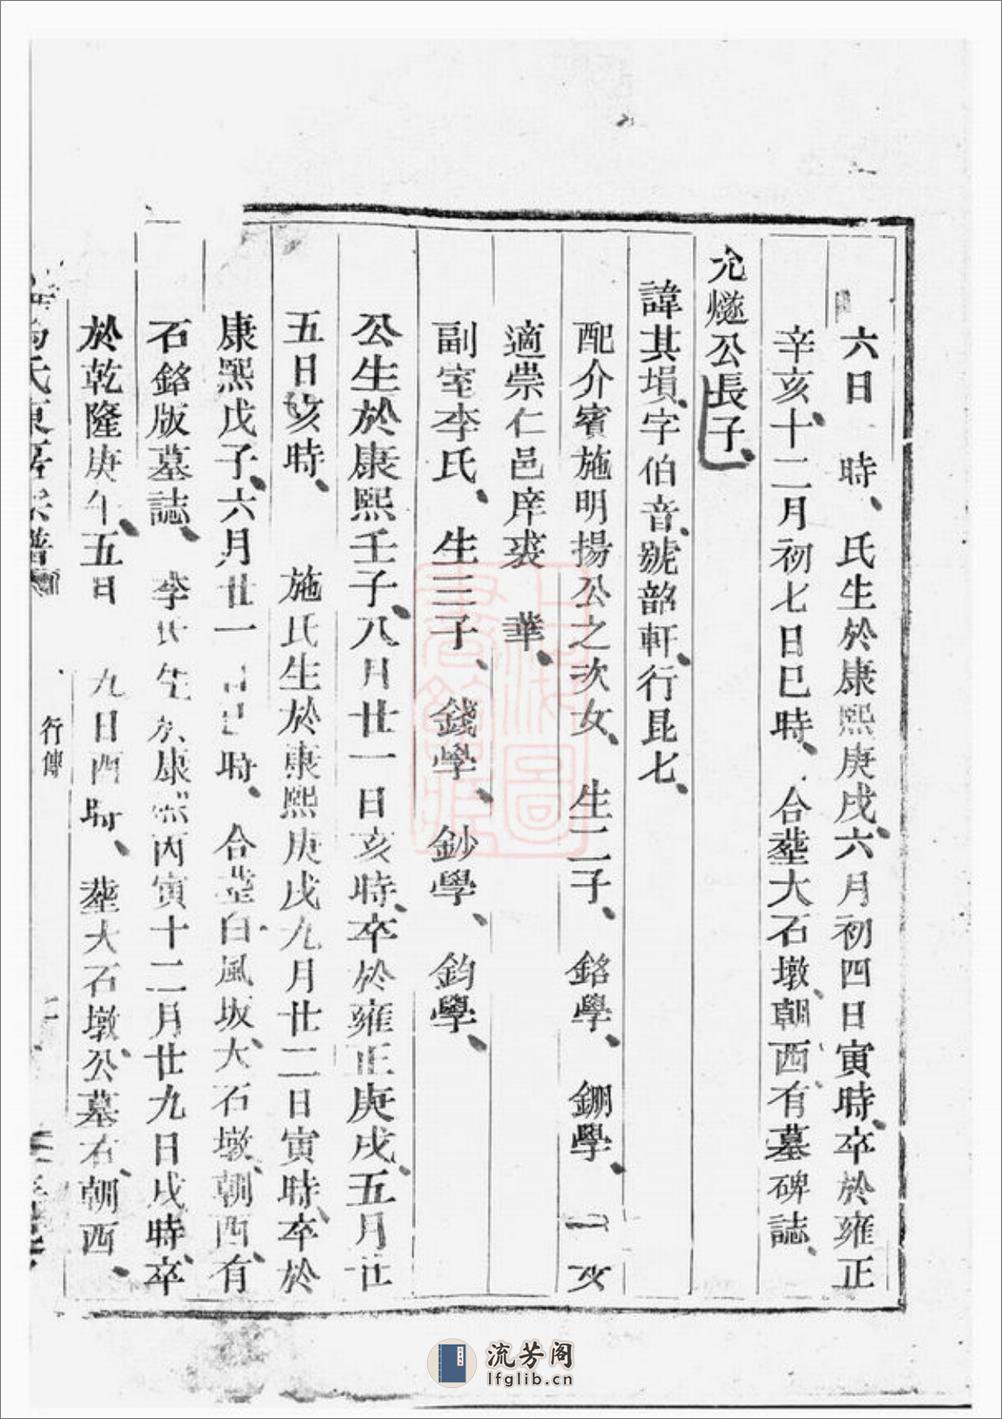 六日　時、氏生於康熙庚戌、六月初四日寅時、卒於雍正
辛亥、十二月初七日巳時、合塟大石墩、朝西、有墓碑誌、
允燧公長子、
諱其塤、字伯音、號韶軒、行昆七、
配介賓施明揚公之次女、生二子、銘學、鉶學、一女
適崇仁邑庠裘　華、
副室李氏、生三子、錢學、鈔學、鈞學、
公生於康熙壬子、八月廿一日亥時、卒於雍正庚戌、五月廿
五日亥時、施氏生於康熙庚戌九月廿二日寅時、卒於
康熙戊子、六月廿一日巳時、合塟白風坂、大石墩、朝西、有
石銘版墓誌、李氏生於康熙丙寅十二月廿九日戌時、卒
於乾隆庚午、五月　九日酉時、塟大石墩、公墓右、朝西、
氏東居宗譜
行傳
上海圖書館藏
流芳阁
lfglib.cn